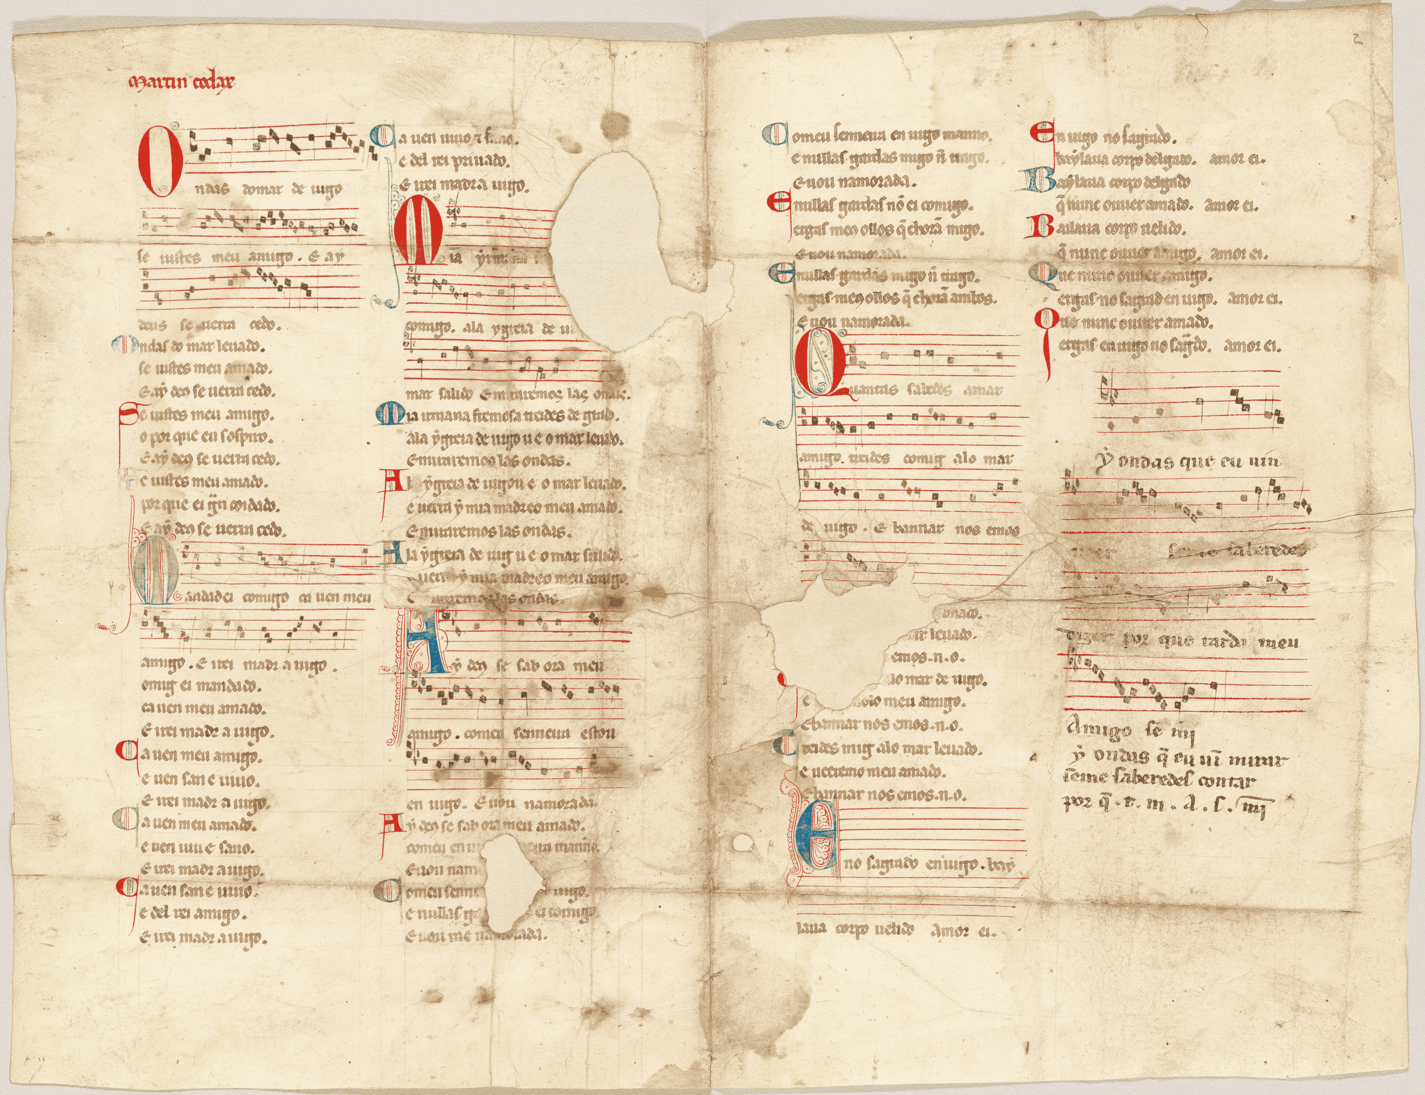 Martin codax
Ondas do mar de uigo
se uistes meu amigo. E ay
deus se uerra cedo.
Ondas do mar leuado.
se uistes meu amado.
E ay deo se uerra cedo.
Se uistes meu amigo.
o por que eu sospiro.
E ay deo se uerra cedo.
Se uistes meu amado.
por que ei grn coidado.
E ay deo se uerra cedo.
Mandad ei comigo ca uen meu
amigo. E irei madr a uigo.
Comig ei mandado.
ca uen meu amado.
E irei madr a uigo.
Ca uen meu amigo.
e uen san e uiuo.
E irei madr a uigo.
Ca uen meu amado.
e uen uiu e sano.
E irei madr a uigo.
Ca uen san e uiuo.
e del rei amigo.
E irei madr a uigo.
Ca uen uiuo e sano.
e del rei priuado.
E irei madr a uigo.
Mia
comigo. a la ygreia de ui
mar salido E miraremos las ondas.
Mia irmana fremosa treides de grado.
a la ygreia de uigo u e o mar leuado.
E miraremos las ondas.
A la ygreia de uigo u e o mar leuado.
e uerra y mia madre o meu amado.
E miraremos las ondas.
A la ygreia de uig u e o mar salido.
e uerra y mia madre o meu amigo.
E miraremos las ondas.
Ay deo se sab ora meu
amigo. com eu senneira estou
en uigo. E uou namorada.
Ay deo se sab ora meu amado.
com eu en ui senneira manno.
E uou nam
Com eu senne uigo.
e nullas ga ei comigo.
E uou me namorada.
Com eu senneira en uigo manno.
e nullas gardas migo ñ trago.
E uou namorada.
E nullas gardas nõ ei comigo.
ergas meo ollos q̃ chorã migo.
E uou namorada.
E nullas gardas migo ñ trago.
ergas meo ollos q̃ chorã ambos.
E uou namorada.
Quantas sabedes amar
amigo. treides comig a lo mar
de uigo. E bannar nos emos
amado.
mar leuado.
emos .n.o.
lo mar de uigo.
e meu amigo.
E bannar nos emos .n.o.
Treides mig a lo mar leuado.
e ueeremo meu amado.
E bannar nos emos .n.o.
Eno sagrado en uigo. bay
laua corpo uelido Amor ei.
En uigo no sagrado.
baylaua corpo delgado. amor ei.
Baylaua corpo delgado
q̃ nunc ouuer amado. amor ei.
Bailaua corpo uelido.
q̃ nunc ouuer amigo. amor ei.
Que nunc ouuer amigo.
ergas no sagrad en uigo. amor ei.
Que nunc ouuer amado.
ergas en uigo no sagrado. amor ei.
y ondas que eu uin
ueer se me saberedes
dizer por que tarda meu
Amigo se mj
y ondas q̃ eu uĩ mirar
se me saberedes contar
por q̃ .t. m. A. s. mj